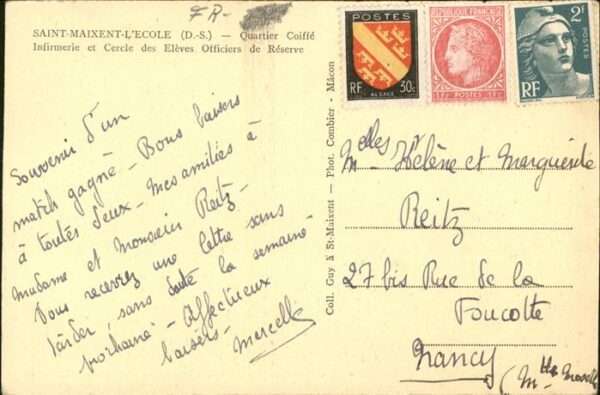 FR-
SAINT-MAIXENT-L'ECOLE (D.-S.) — Quartier Coiffé
Infirmerie et Cercle des Elèves Officiers de Réserve
Souvenir d'un
match gagné - Bons baisers
à toutes deux - Mes amitiés à
Madame et Monsieur Reitz -
Vous recevrez une lettre sans
tarder, sans doute la semaine
prochaine - Affectueux
baisers - Marcelle
Coll. Guy à St-Maixent - Phot. Combier - Mâcon
POSTES
RF ALSACE 30c
REPUBLIQUE FRANÇAISE
POSTES
2F
POSTES
RF
Melles Hélène et Marguerite
Reitz
27 bis Rue de la
Foucotte
Nancy
(Mthe Moselle